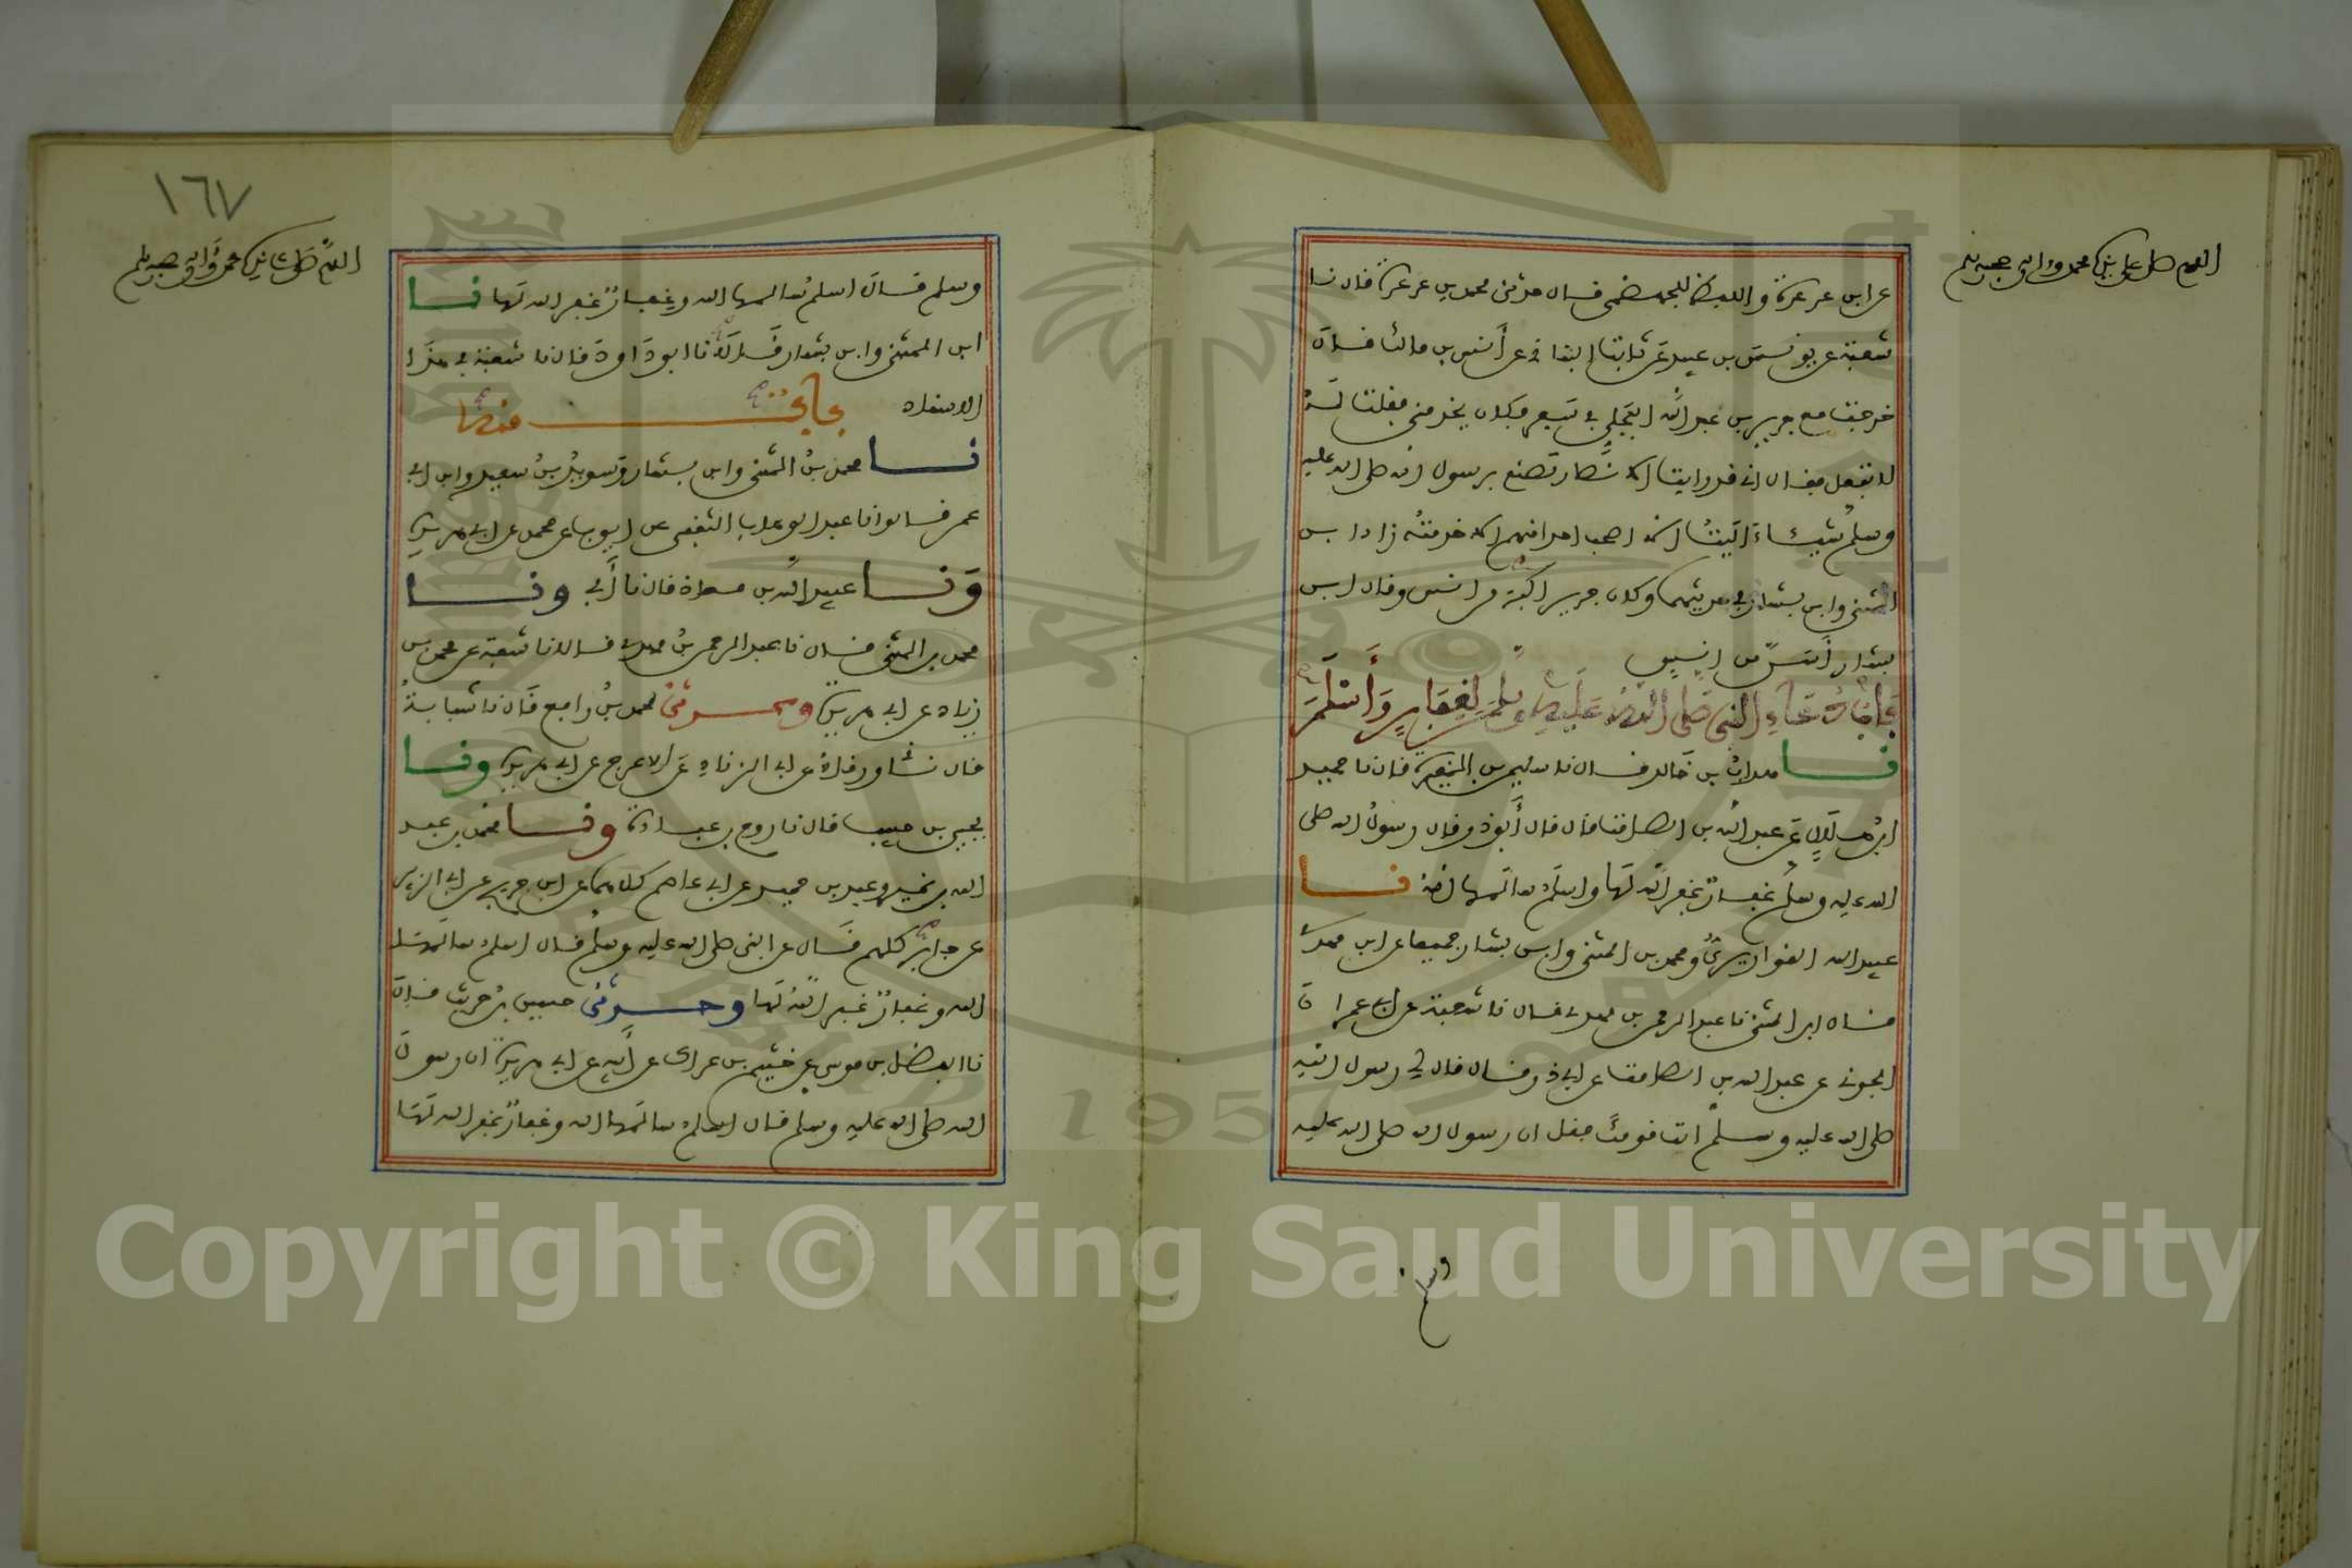 اللهم صل على نبيك محمد وآله وصحبه وسلم
عن ابن عرعرة واللفظ للجهضمي قال حدثني محمد بن عرعرة قال نا
شعبة عن يونس بن عبيد عن ثابت البناني عن أنس بن مالك قال
خرجت مع جرير بن عبد الله البجلي في سفر وكان يخدمني فقلت له
لا تفعل فقال إني قد رأيت الانصار تصنع برسول الله صلى الله عليه
وسلم شيئا آليت أن لا أصحب أحدا منهم إلا خدمته زاد ابن
المثنى وابن بشار في حديثهما وكان جرير أكبر من أنس وقال ابن
بشار أسن من أنس
باب دعاء النبي صلى الله عليه وسلم لغفار وأسلم
نا هداب بن خالد قال نا سليمن بن المغيرة قال نا حميد
ابن هلال عن عبد الله بن الصامت قال قال أبو ذر قال رسول الله صلى
الله عليه وسلم غفار غفر الله لها وأسلم سالمها الله نا
عبيد الله القواريري ومحمد بن المثنى وابن بشار جميعا عن ابن مهدي
قال ابن المثنى نا عبد الرحمن بن مهدي قال نا شعبة عن أبي عمران
الجوني عن عبد الله بن الصامت عن أبي ذر قال قال لي رسول الله
صلى الله عليه وسلم ائت قومك فقل ان رسول الله صلى الله عليه
وسلم
١٦٧
اللهم صل على نبيك محمد وآله وصحبه وسلم
وسلم قال أسلم سالمها الله وغفار غفر الله لها نا
ابن المثنى وابن بشار قالا نا ابو داود قال نا شعبة في هذا
الاسناد
نا محمد بن المثنى وابن بشار وسويد بن سعيد وابن أبي
عمر قالوا نا عبد الوهاب الثقفي عن أيوب عن محمد عن أبي هريرة
ونا عبيد الله بن معاذ قال نا أبي ونا
محمد بن المثنى قال نا عبد الرحمن بن مهدي قالا نا شعبة عن محمد بن
زياد عن أبي هريرة وحدثني محمد بن رافع قال نا شبابة
قال نا ورقاء عن أبي الزناد عن الاعرج عن أبي هريرة ونا
يحيى بن حبيب قال نا روح بن عبادة ونا محمد بن عبد
الله بن نمير وعبد بن حميد عن أبي عاصم كلاهما عن ابن جريج عن أبي الزبير
عن جابر كلهم قال عن النبي صلى الله عليه وسلم قال أسلم سالمها
الله وغفار غفر الله لها وحدثني حسين بن حريث قال
نا الفضل بن موسى عن خثيم بن عراك عن أبيه عن أبي هريرة ان رسول
الله صلى الله عليه وسلم قال أسلم سالمها الله وغفار غفر الله لها
1957
Copyright © King Saud University